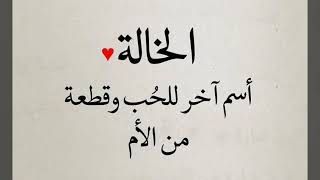 الخالة♥
أسم آخر للحُب وقطعة
من الأم